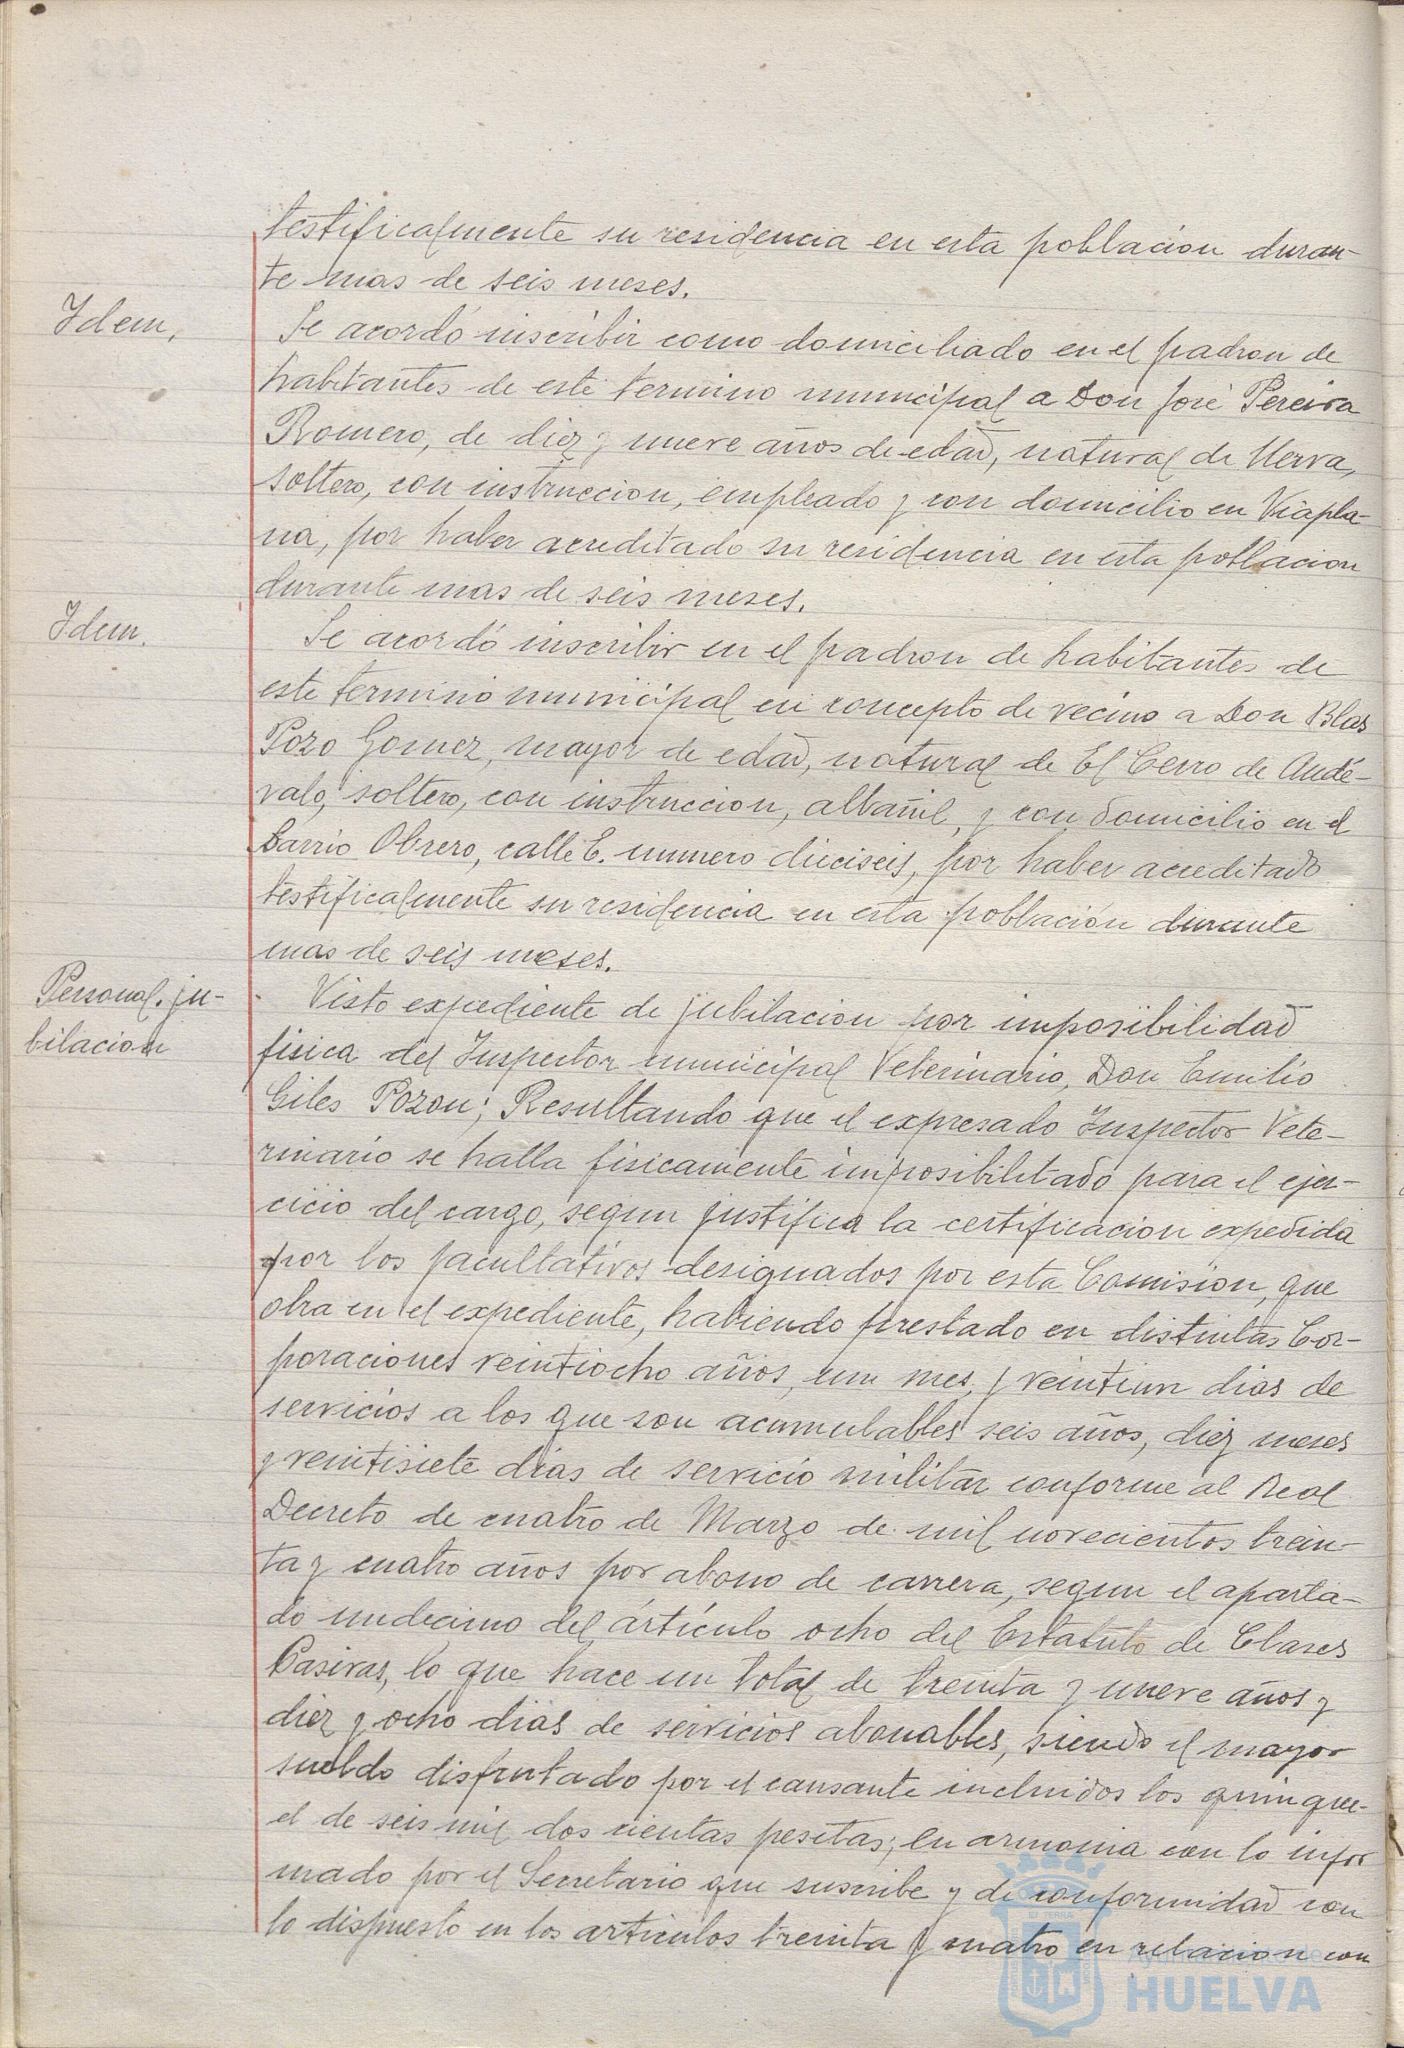 testificalmente su residencia en esta poblacion duran-
te mas de seis meses.
Idem,
Se acordó inscribir como domiciliado en el padron de
habitantes de este termino municipal a Don José Pereira
Romero, de diez y nueve años de edad, natural de Nerva,
soltero, con instruccion, empleado y con domicilio en Viapla-
na, por haber acreditado su residencia en esta poblacion
durante mas de seis meses.
Idem.
Se acordó inscribir en el padron de habitantes de
este termino municipal en concepto de vecino a Don Blas
Pozo Gomez, mayor de edad, natural de El Cerro de Andé-
valo, soltero, con instruccion, albañil, y con domicilio en el
barrio Obrero, calle E. numero dieciseis, por haber acreditado
testificalmente su residencia en esta poblacion durante
mas de seis meses.
Personal. ju-
bilacion
Visto expediente de jubilacion por imposibilidad
fisica del Inspector municipal Veterinario, Don Emilio
Giles Pozon; Resultando que el expresado Inspector Vete-
rinario se halla fisicamente imposibilitado para el ejer-
cicio del cargo, segun justifica la certificacion expedida
por los facultativos designados por esta Comision, que
obra en el expediente, habiendo prestado en distintas Cor-
poraciones veintiocho años, un mes, y veintiun dias de
servicios a los que son acumulables seis años, diez meses
y veintisiete dias de servicio militar conforme al Real
Decreto de cuatro de Marzo de mil novecientos trein-
ta y cuatro años por abono de carrera, segun el aparta-
do undecimo del artículo ocho del Estatuto de Clases
Pasivas, lo que hace un total de treinta y nueve años y
diez y ocho dias de servicios abonables, siendo el mayor
sueldo disfrutado por el causante incluidos los quinque-
el de seis mil dos cientas pesetas; en armonia con lo infor
mado por el Secretario que suscribe y de conformidad con
lo dispuesto en los articulos treinta y cuatro en relacion con
Ayuntamiento de
HUELVA